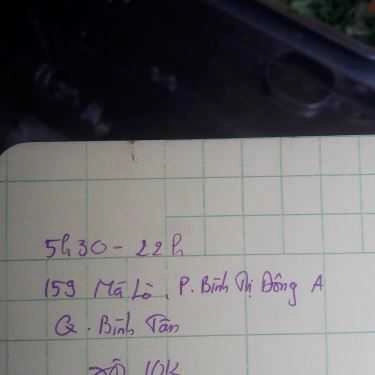 5h30 - 22h
159 Mã Lò, P. Bình Thị Đông A
Q. Bình Tân
10K